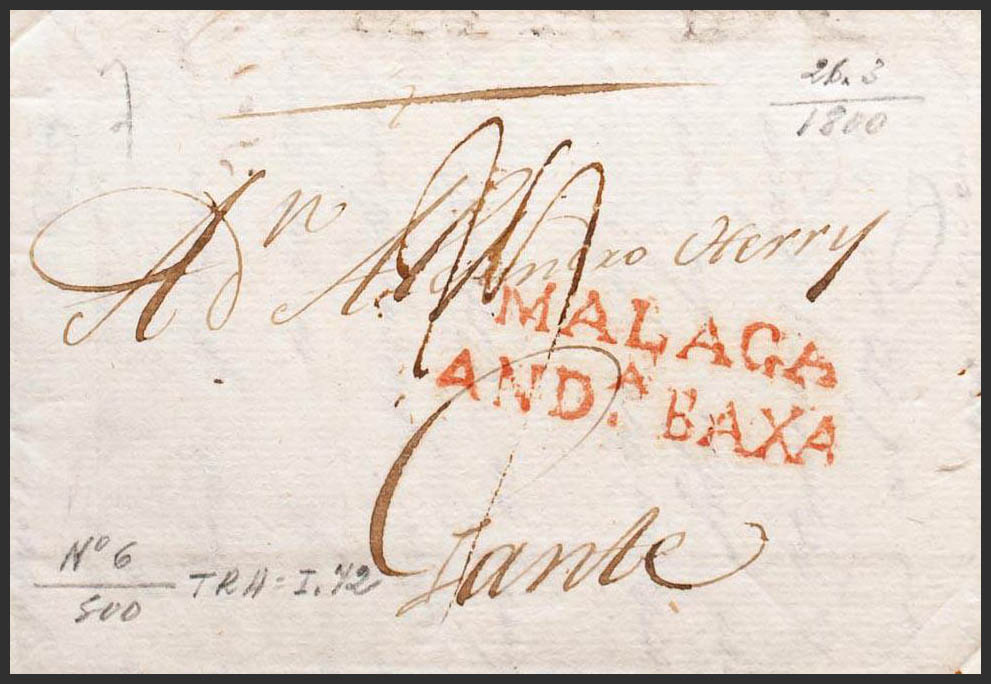 26.3
1800
Dn Alexandro Herry
MALAGA
ANDA. BAXA
No 6
500
TRA=I.42